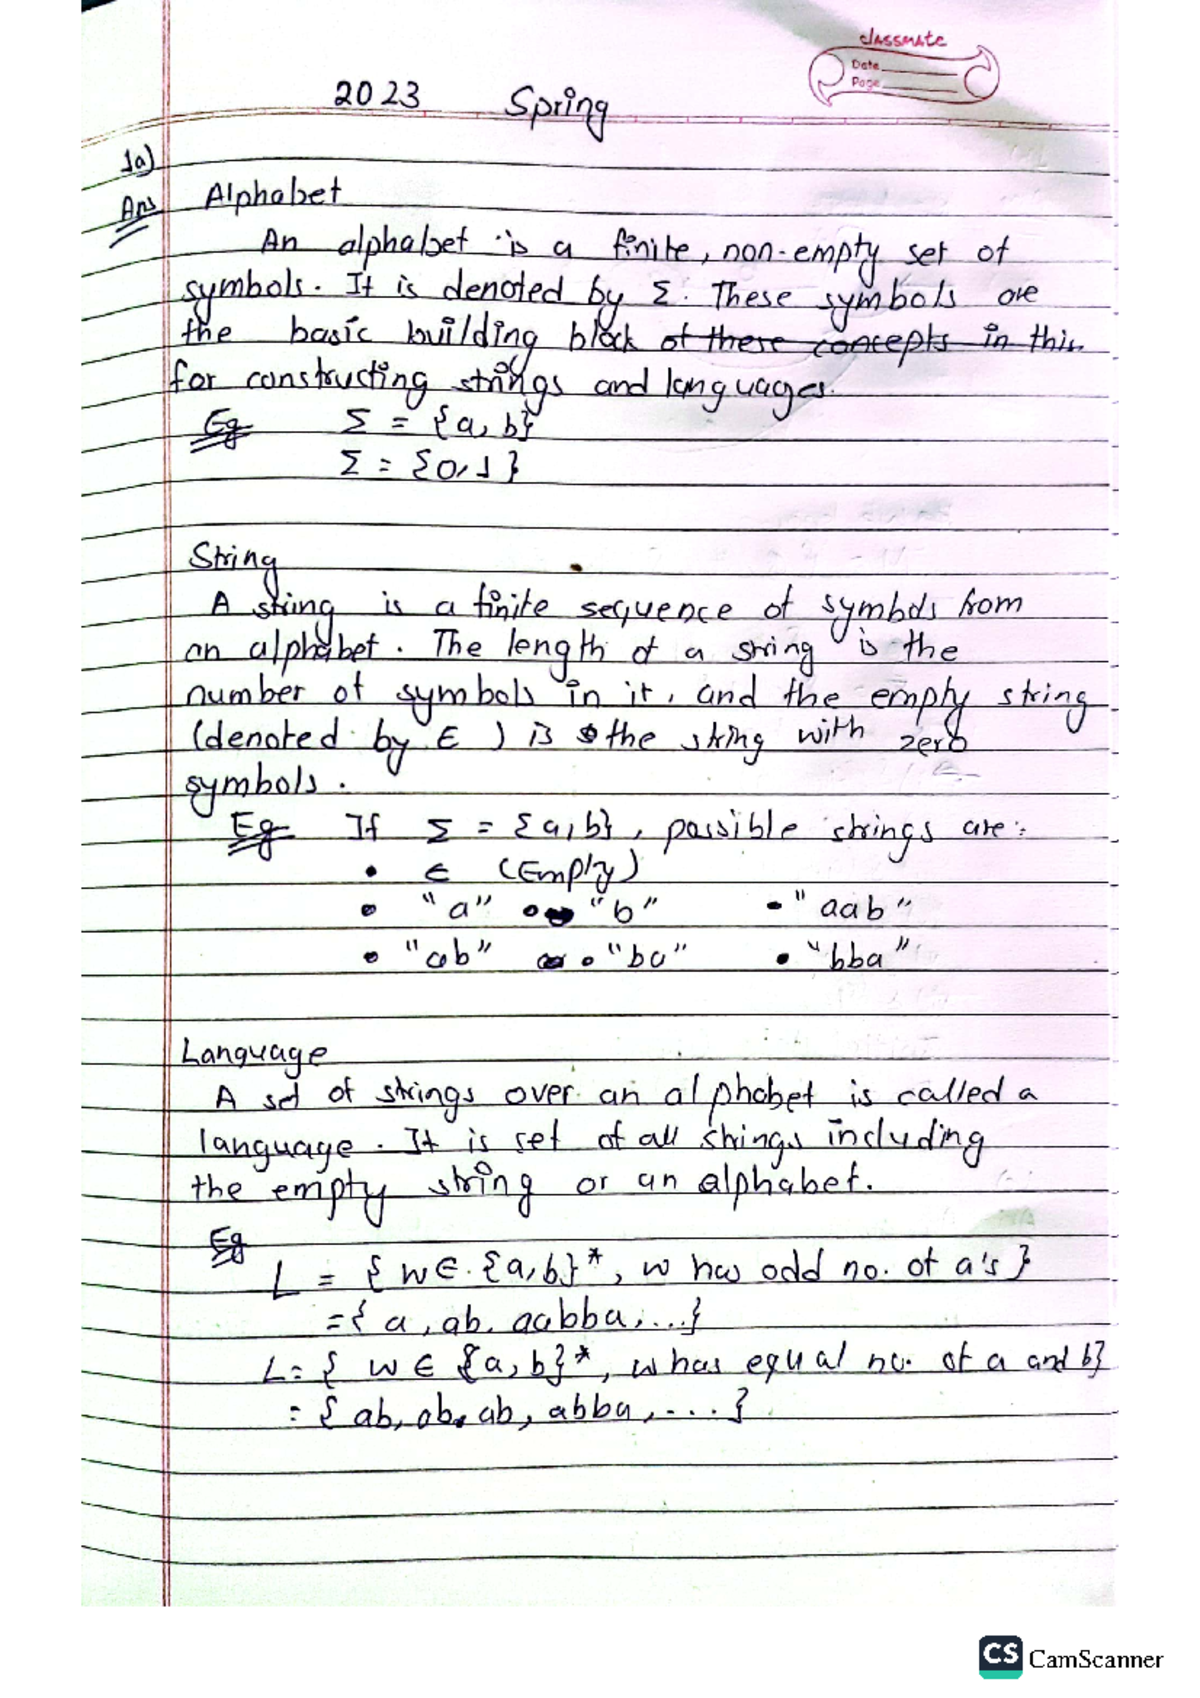 classmate
Date
Page
2023 Spring
1a)
Ans Alphabet
An alphabet is a finite, non-empty set of
symbols. It is denoted by Σ. These symbols are
the basic building block of these concepts in this
for constructing strings and languages.
Eg Σ = {a, b}
Σ = {0, 1}
String
A string is a finite sequence of symbols from
an alphabet. The length of a string is the
number of symbols in it, and the empty string
(denoted by ∈ ) is the string with zero
symbols.
Eg If Σ = {a, b}, possible strings are:
• ∈ (Empty)
• "a" • "b" • "aab"
• "ab" • "ba" • "bba"
Language
A set of strings over an alphabet is called a
language. It is set of all strings including
the empty string or an alphabet.
Eg
L = { w ∈ {a, b}*, w has odd no. of a's }
= { a, ab, aabba, ...}
L = { w ∈ {a, b}*, w has equal no. of a and b}
= { ab, ab, ab, abba, .... }
CS CamScanner